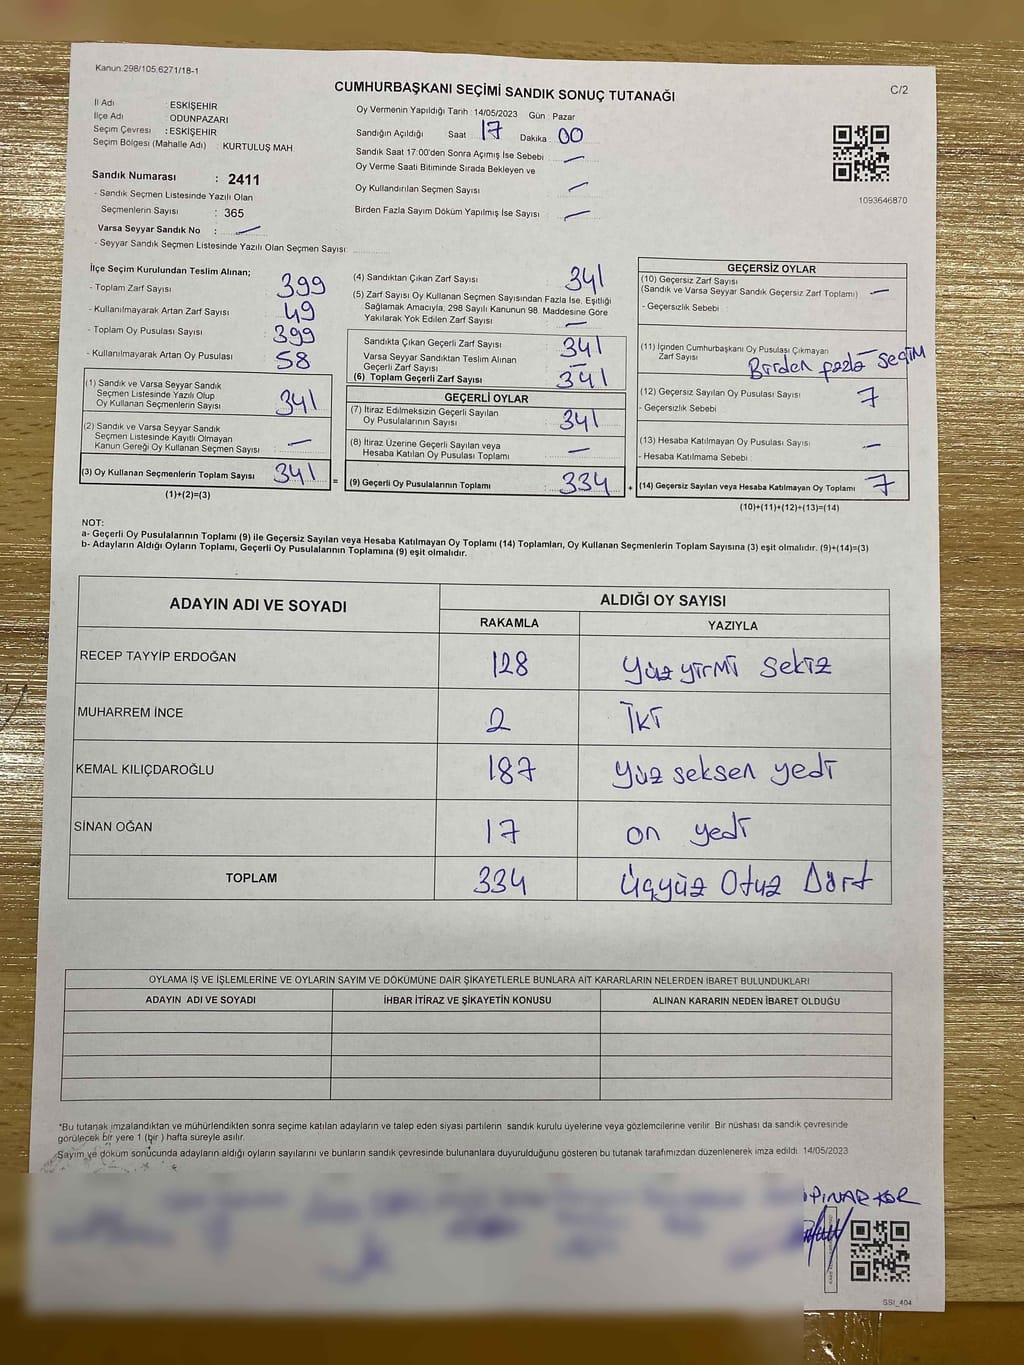 Kanun.298/105,6271/18-1
C/2
CUMHURBAŞKANI SEÇİMİ SANDIK SONUÇ TUTANAĞI
İl Adı : ESKİŞEHİR
İlçe Adı : ODUNPAZARI
Seçim Çevresi : ESKİŞEHİR
Seçim Bölgesi (Mahalle Adı) : KURTULUŞ MAH
Sandık Numarası : 2411
- Sandık Seçmen Listesinde Yazılı Olan
Seçmenlerin Sayısı : 365
Varsa Seyyar Sandık No : —
- Seyyar Sandık Seçmen Listesinde Yazılı Olan Seçmen Sayısı:
Oy Vermenin Yapıldığı Tarih : 14/05/2023 Gün : Pazar
Sandığın Açıldığı Saat : 17 Dakika : 00
Sandık Saat 17:00'den Sonra Açımış İse Sebebi : —
Oy Verme Saati Bitiminde Sırada Bekleyen ve
Oy Kullandırılan Seçmen Sayısı : —
Birden Fazla Sayım Döküm Yapılmış İse Sayısı : —
1093646870
İlçe Seçim Kurulundan Teslim Alınan;
- Toplam Zarf Sayısı : 399
- Kullanılmayarak Artan Zarf Sayısı : 49
- Toplam Oy Pusulası Sayısı : 399
- Kullanılmayarak Artan Oy Pusulası : 58
(1) Sandık ve Varsa Seyyar Sandık
Seçmen Listesinde Yazılı Olup
Oy Kullanan Seçmenlerin Sayısı : 341
(2) Sandık ve Varsa Seyyar Sandık
Seçmen Listesinde Kayıtlı Olmayan
Kanun Gereği Oy Kullanan Seçmen Sayısı : —
(3) Oy Kullanan Seçmenlerin Toplam Sayısı : 341
(1)+(2)=(3)
(4) Sandıktan Çıkan Zarf Sayısı : 341
(5) Zarf Sayısı Oy Kullanan Seçmen Sayısından Fazla İse, Eşitliği
Sağlamak Amacıyla, 298 Sayılı Kanunun 98. Maddesine Göre
Yakılarak Yok Edilen Zarf Sayısı : —
Sandıkta Çıkan Geçerli Zarf Sayısı : 341
Varsa Seyyar Sandıktan Teslim Alınan
Geçerli Zarf Sayısı : —
(6) Toplam Geçerli Zarf Sayısı : 341
GEÇERLİ OYLAR
(7) İtiraz Edilmeksizin Geçerli Sayılan
Oy Pusulalarının Sayısı : 341
(8) İtiraz Üzerine Geçerli Sayılan veya
Hesaba Katılan Oy Pusulası Toplamı : —
= (9) Geçerli Oy Pusulalarının Toplamı : 334
GEÇERSİZ OYLAR
(10) Geçersiz Zarf Sayısı
(Sandık ve Varsa Seyyar Sandık Geçersiz Zarf Toplamı) : —
- Geçersizlik Sebebi :
(11) İçinden Cumhurbaşkanı Oy Pusulası Çıkmayan
Zarf Sayısı : —
Birden fazla seçim
(12) Geçersiz Sayılan Oy Pusulası Sayısı : 7
- Geçersizlik Sebebi :
(13) Hesaba Katılmayan Oy Pusulası Sayısı : —
- Hesaba Katılmama Sebebi :
+ (14) Geçersiz Sayılan veya Hesaba Katılmayan Oy Toplamı : 7
(10)+(11)+(12)+(13)=(14)
NOT:
a- Geçerli Oy Pusulalarının Toplamı (9) ile Geçersiz Sayılan veya Hesaba Katılmayan Oy Toplamı (14) Toplamları, Oy Kullanan Seçmenlerin Toplam Sayısına (3) eşit olmalıdır. (9)+(14)=(3)
b- Adayların Aldığı Oyların Toplamı, Geçerli Oy Pusulalarının Toplamına (9) eşit olmalıdır.
ADAYIN ADI VE SOYADI
ALDIĞI OY SAYISI
RAKAMLA YAZIYLA
RECEP TAYYİP ERDOĞAN 128 Yüz yirmi sekiz
MUHARREM İNCE 2 İki
KEMAL KILIÇDAROĞLU 187 Yüz seksen yedi
SİNAN OĞAN 17 on yedi
TOPLAM 334 Üçyüz Otuz Dört
OYLAMA İŞ VE İŞLEMLERİNE VE OYLARIN SAYIM VE DÖKÜMÜNE DAİR ŞİKAYETLERLE BUNLARA AİT KARARLARIN NELERDEN İBARET BULUNDUKLARI
ADAYIN ADI VE SOYADI İHBAR İTİRAZ VE ŞİKAYETİN KONUSU ALINAN KARARIN NEDEN İBARET OLDUĞU
*Bu tutanak imzalandıktan ve mühürlendikten sonra seçime katılan adayların ve talep eden siyasi partilerin sandık kurulu üyelerine veya gözlemcilerine verilir. Bir nüshası da sandık çevresinde
görülecek bir yere 1 (bir ) hafta süreyle asılır.
Sayım ve döküm sonucunda adayların aldığı oyların sayılarını ve bunların sandık çevresinde bulunanlara duyurulduğunu gösteren bu tutanak tarafımızdan düzenlenerek imza edildi. 14/05/2023
PINAR KOR
SSI_404